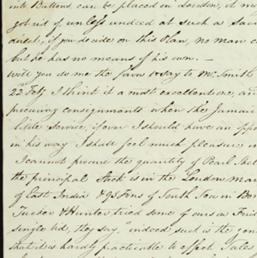 into Bottoms can be placed in London, it m
got rid of unless undied at such a Sac
aided, if you decide on this Plan, no man c
but he has no means of his own. —
will you do me the favor to say to Mr. Smith
22 Feby I think it a most excellent one, an
procuring consignments when the Jamai
little service, if ever I should have an oppo
in his way I shall feel much pleasure in
I cannot procure the quantity of Pearl Shell
the principal Stock is in the London Mar
of East India & 95 Tons of South Sea in Bon
& Hunter tried some of our
single bid, they say, indeed such is the gen
that it is hardly practicable to effect Sales